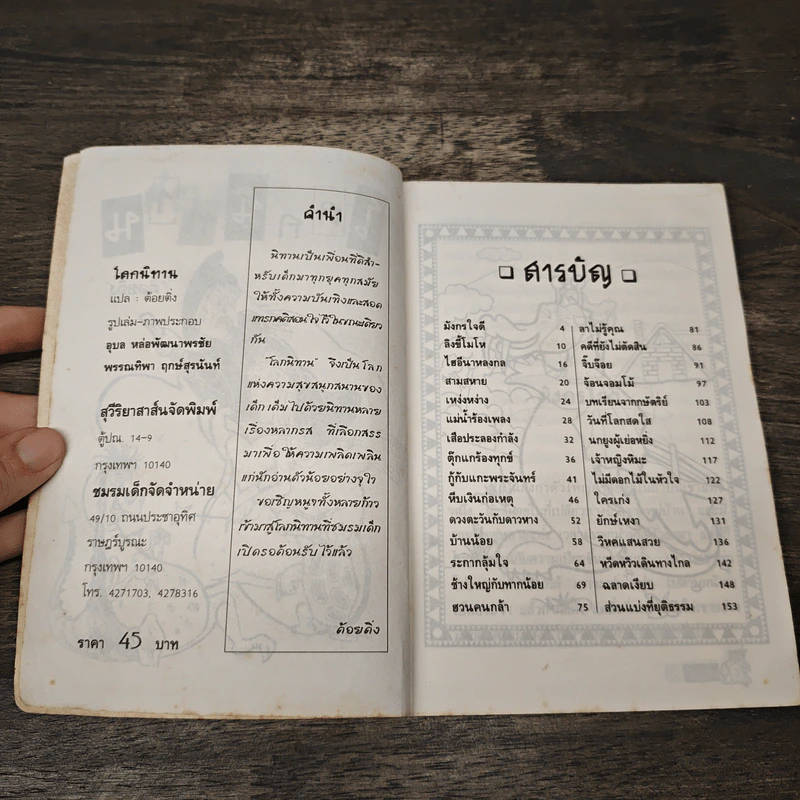 โลกนิทาน
แปล : ต้อยติ่ง
รูปเล่ม-ภาพประกอบ
อุบล หล่อพัฒนาพรชัย
พรรณทิพา ฤกษ์สุรนันท์
สุวีริยาสาส์นจัดพิมพ์
ตู้ปณ. 14-9
กรุงเทพฯ 10140
ชมรมเด็กจัดจำหน่าย
49/10 ถนนประชาอุทิศ
ราษฎร์บูรณะ
กรุงเทพฯ 10140
โทร. 4271703, 4278316
ราคา 45 บาท
คำนำ
นิทานเป็นเพื่อนที่ดีสำ-
หรับเด็กมาทุกยุคทุกสมัย
ให้ทั้งความบันเทิงและสอด
แทรกคติสอนใจไว้ในขณะเดียว
กัน
"โลกนิทาน" จึงเป็นโลก
แห่งความสุขสนุกสนานของ
เด็ก เต็มไปด้วยนิทานหลาย
เรื่องหลากรส ที่เลือกสรร
มาเพื่อให้ความเพลิดเพลิน
แก่นักอ่านตัวน้อยอย่างจุใจ
ขอเชิญหนูๆทั้งหลายก้าว
เข้ามาสู่โลกนิทานที่ชมรมเด็ก
เปิดรอต้อนรับไว้แล้ว
ต้อยติ่ง
สารบัญ
มังกรใจดี 4
ลิงขี้โมโห 10
ไฮอีนาหลงกล 16
สามสหาย 20
เหง่งหง่าง 24
แม่น้ำร้องเพลง 28
เสือประลองกำลัง 32
ตุ๊กแกร้องทุกข์ 36
กู้กับแกะพระจันทร์ 41
หีบเงินก่อเหตุ 46
ดวงตะวันกับดาวหาง 52
บ้านน้อย 58
ระกากลุ้มใจ 64
ช้างใหญ่กับทากน้อย 69
ฮวนคนกล้า 75
ลาไม่รู้คุณ 81
คดีที่ยังไม่ตัดสิน 86
จิ๊บจ๊อย 91
จ้อนจอมโม้ 97
บทเรียนจากกษัตริย์ 103
วันที่โลกสดใส 108
นกยูงผู้เย่อหยิ่ง 112
เจ้าหญิงหิมะ 117
ไม่มีดอกไม้ในหัวใจ 122
ใครเก่ง 127
ยักษ์เหงา 131
วิหคแสนสวย 136
หวีดหวิวเดินทางไกล 142
ฉลาดเงียบ 148
ส่วนแบ่งที่ยุติธรรม 153